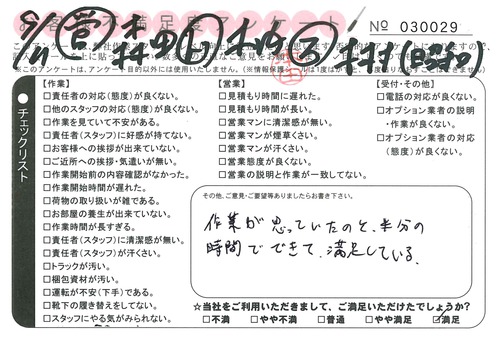 お客様不満足度アンケート
No 030029
8/11 営
【作業】
□責任者の対応(態度)が良くない。
□他のスタッフの対応(態度)が良くない。
□作業を見ていて不安がある。
□責任者(スタッフ)に好感が持てない。
□お客様への挨拶が出来ていない。
□ご近所への挨拶・気遣いが無い。
□作業開始前の内容確認がなかった。
□作業開始時間が遅れた。
□荷物の取り扱いが雑である。
□お部屋の養生が出来ていない。
□作業時間が長すぎる。
□責任者(スタッフ)に清潔感が無い。
□責任者(スタッフ)が汗くさい。
□トラックが汚い。
□梱包資材が汚い。
□運転が不安(下手)である。
□靴下の履き替えをしてない。
□スタッフにやる気がみられない。
チェックリスト
【営業】
□見積もり時間に遅れた。
□見積もり時間が長い。
□営業マンに清潔感が無い。
□営業マンが煙草くさい。
□営業マンが汗くさい。
□営業態度が良くない。
□営業の説明と作業が一致してない。
【受付・その他】
□電話の対応が良くない。
□オプション業者の説明
・作業が良くない。
□オプション業者の対応
(態度)が良くない。
その他、ご意見・ご要望等ありましたらお書き下さい。
作業が思っていたのと、半分の
時間でできて、満足している。
☆当社をご利用いただきまして、ご満足いただけたでしょうか?
□不満 □やや不満 □普通 □やや満足 ☑満足